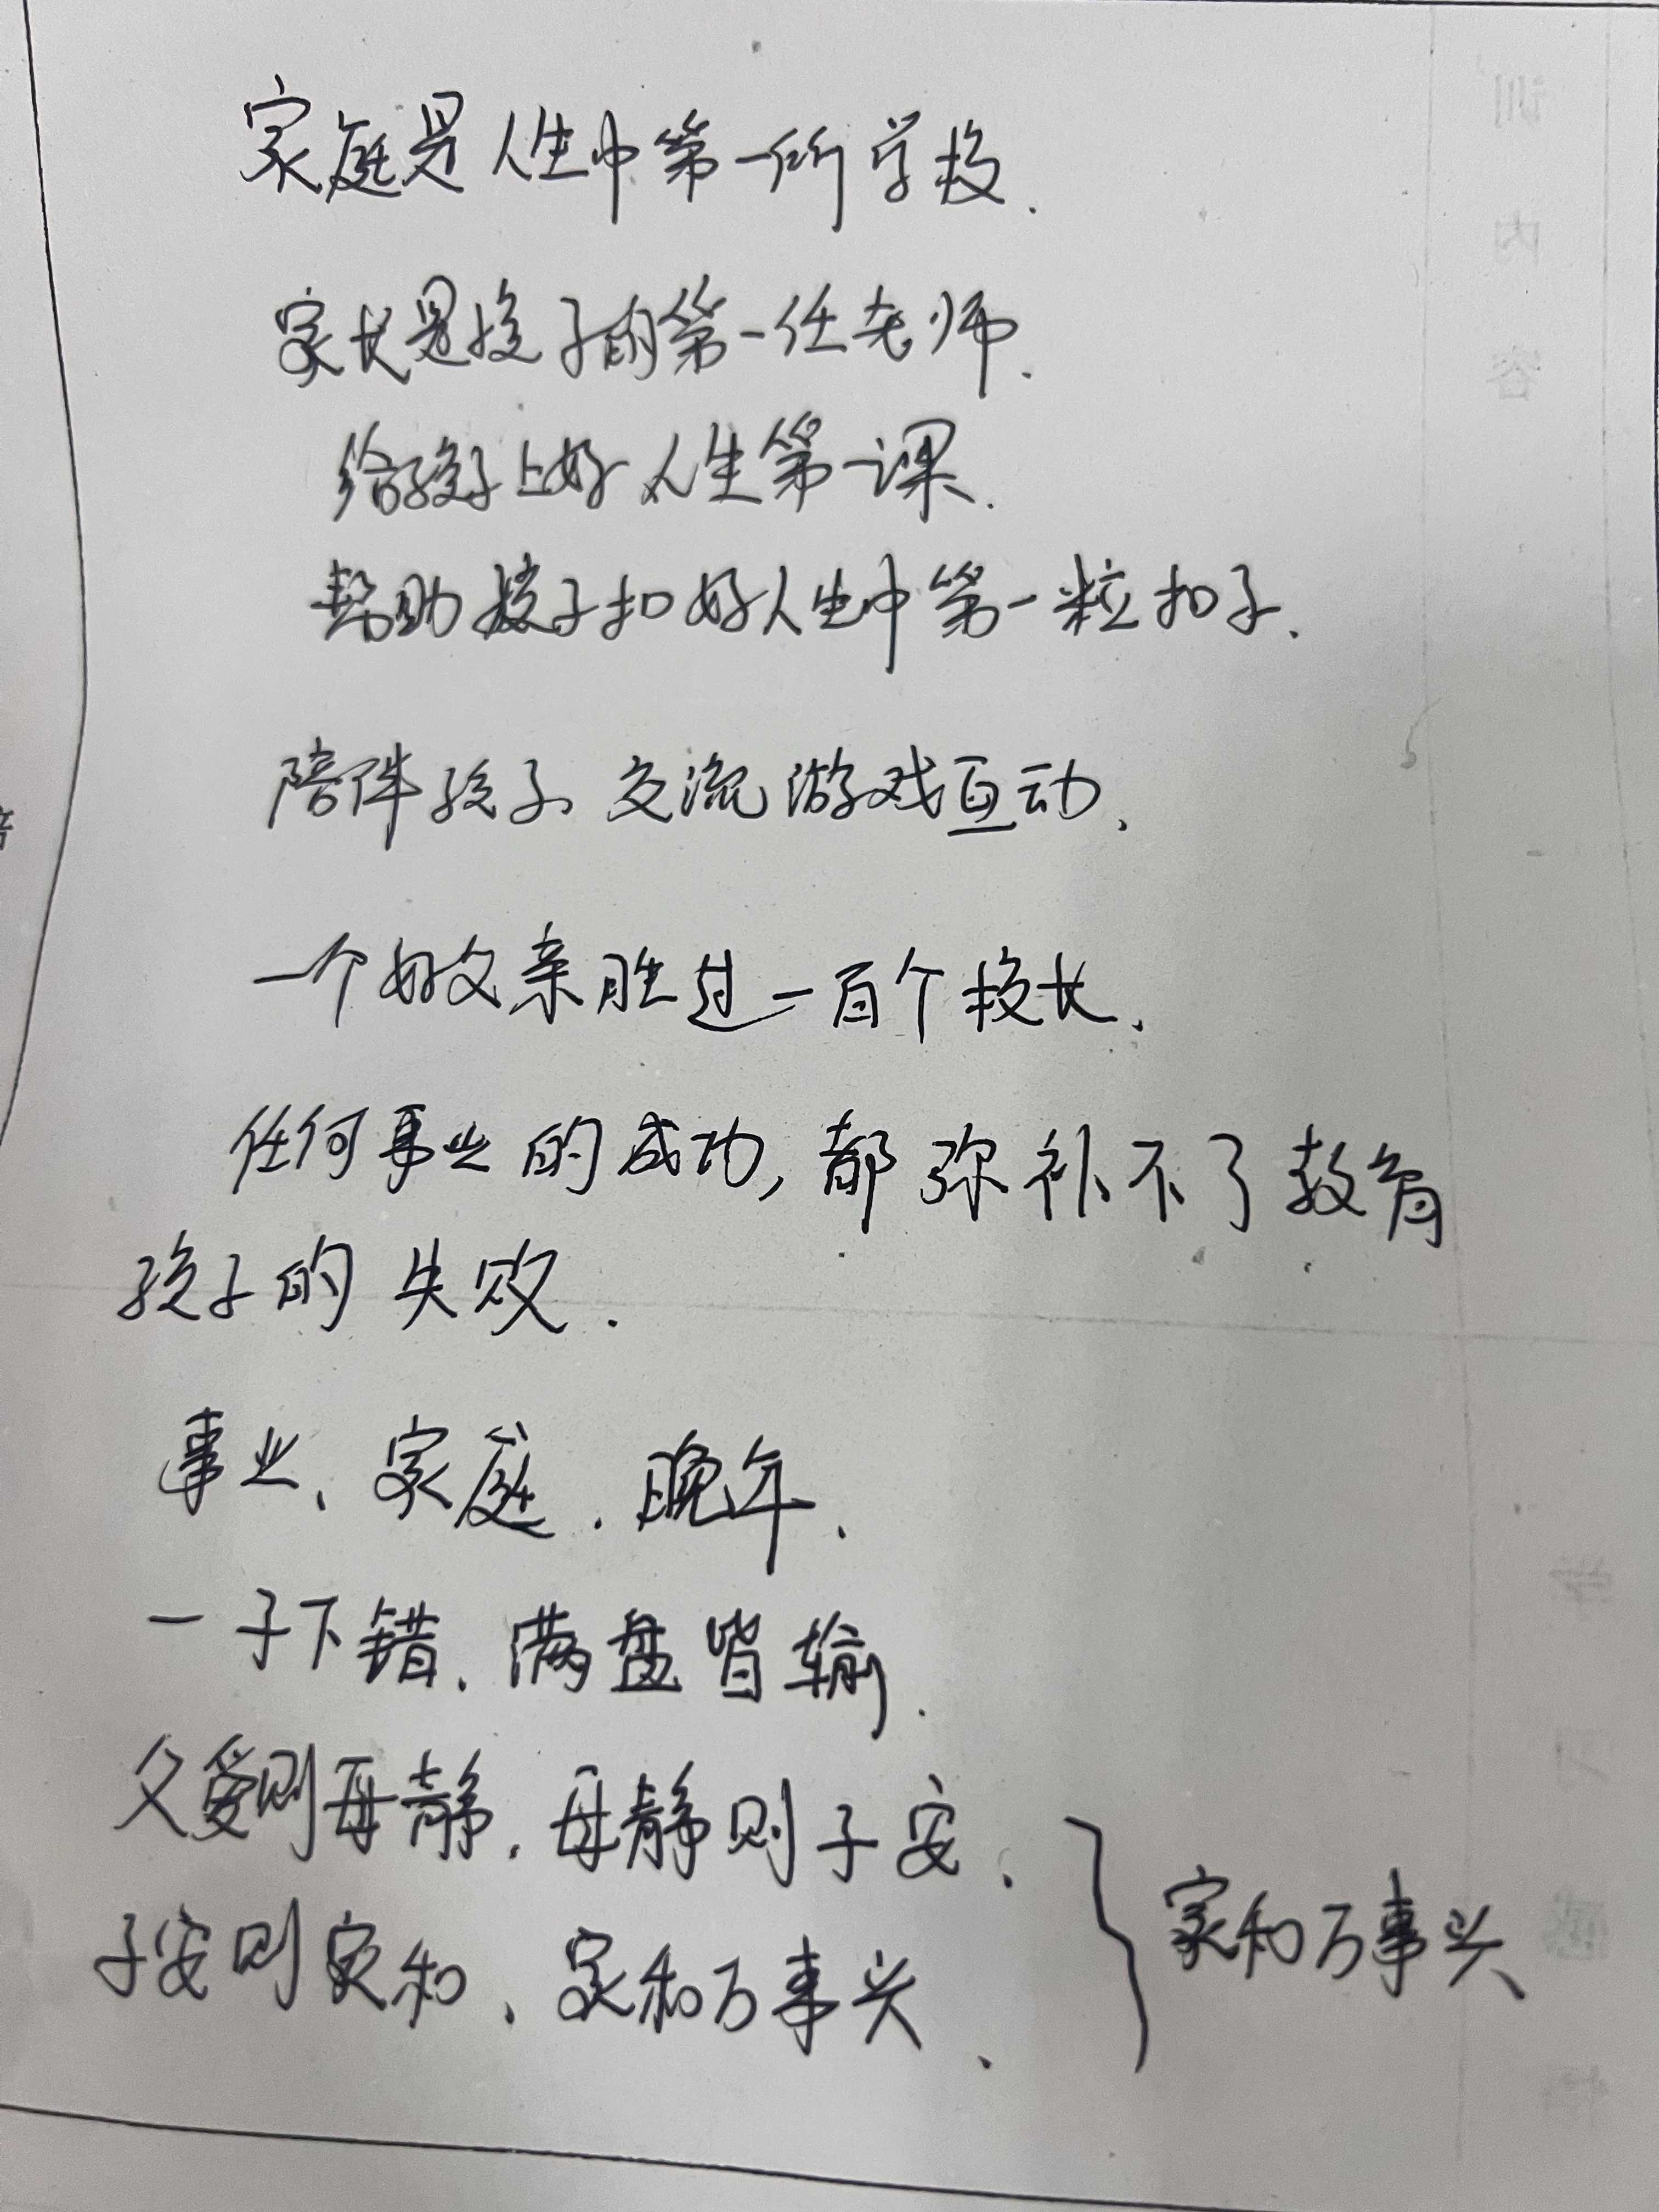 家庭是人生中第一所学校.
家长是孩子的第一任老师.
给孩子上好人生第一课.
帮助孩子扣好人生中第一粒扣子.
陪伴孩子、交流游戏互动.
一个好父亲胜过一百个校长.
任何事业的成功,都弥补不了教育
孩子的失败.
事业、家庭.晚年.
一子下错.满盘皆输.
父爱则母静.母静则子安、
子安则家和、家和万事兴、
家和万事兴
训内容